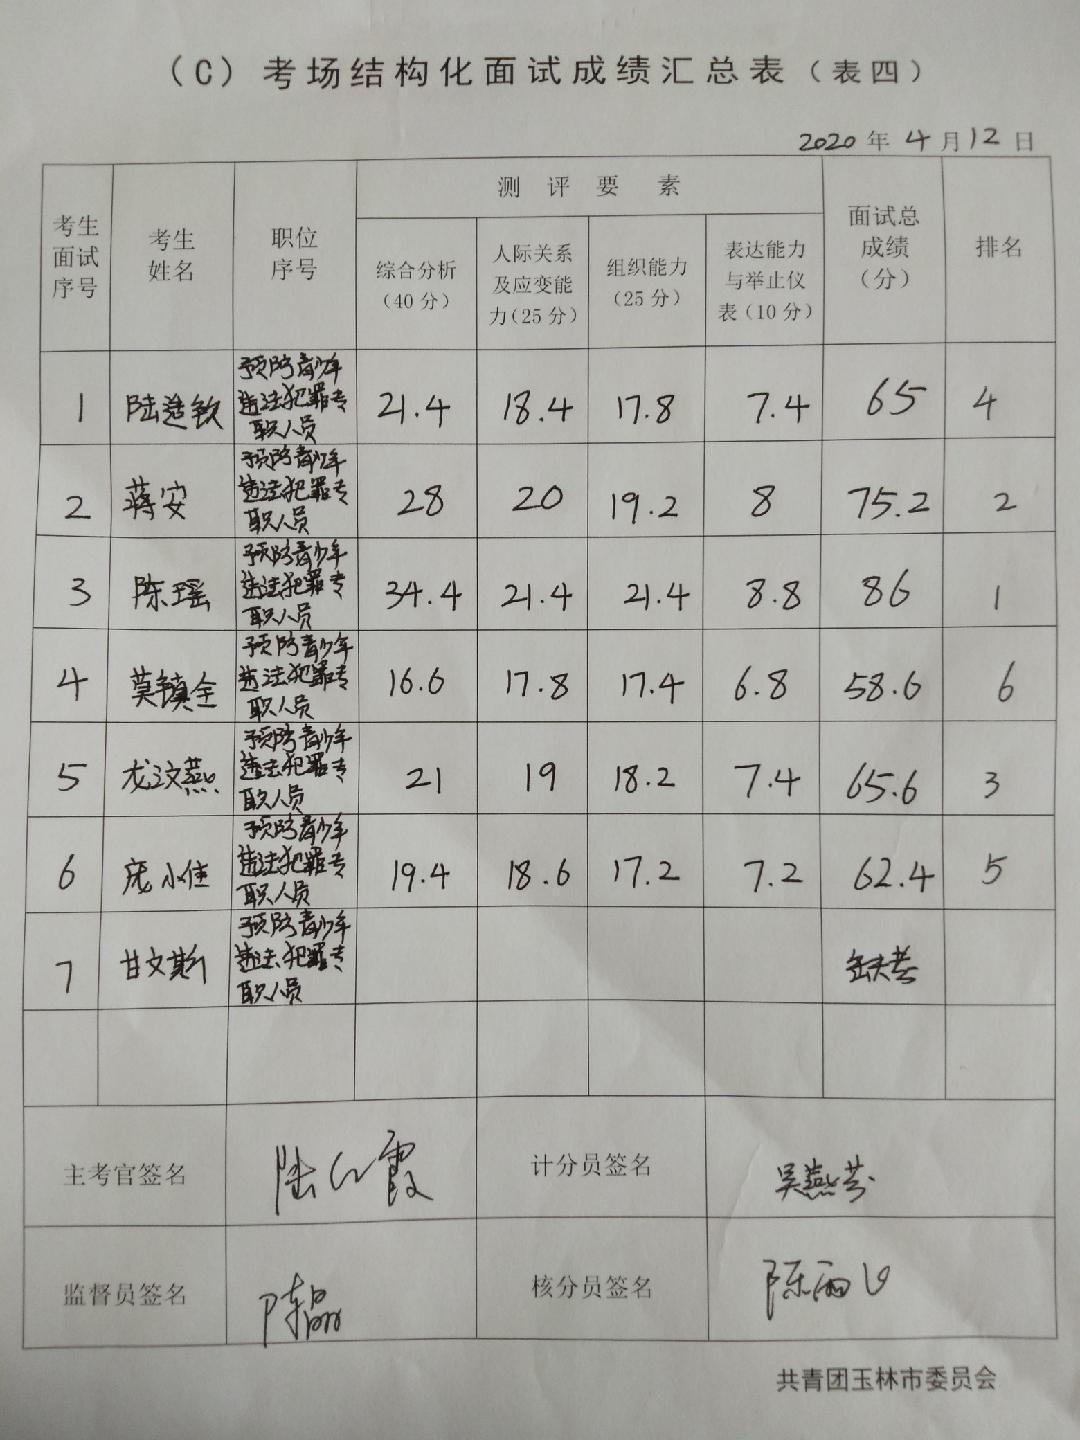 （C）考场结构化面试成绩汇总表（表四）
2020 年 4 月 12 日
考生
面试
序号
考生
姓名
职位
序号
测 评 要 素
综合分析
（40 分）
人际关系
及应变能
力（25 分）
组织能力
（25 分）
表达能力
与举止仪
表（10 分）
面试总
成绩
（分）
排名
1 陆 钦 预防青少年
违法犯罪专
职人员
21.4 18.4 17.8 7.4 65 4
2 蒋安 预防青少年
违法犯罪专
职人员
28 20 19.2 8 75.2 2
3 陈瑶 预防青少年
违法犯罪专
职人员
34.4 21.4 21.4 8.8 86 1
4 莫镇全 预防青少年
违法犯罪专
职人员
16.6 17.8 17.4 6.8 58.6 6
5 龙汶燕 预防青少年
违法犯罪专
职人员
21 19 18.2 7.4 65.6 3
6 庞小佳 预防青少年
违法犯罪专
职人员
19.4 18.6 17.2 7.2 62.4 5
7 甘文斯 预防青少年
违法犯罪专
职人员
缺考
主考官签名 陆 霞 计分员签名 吴燕芬
监督员签名 陈晶 核分员签名 陈雨
共青团玉林市委员会